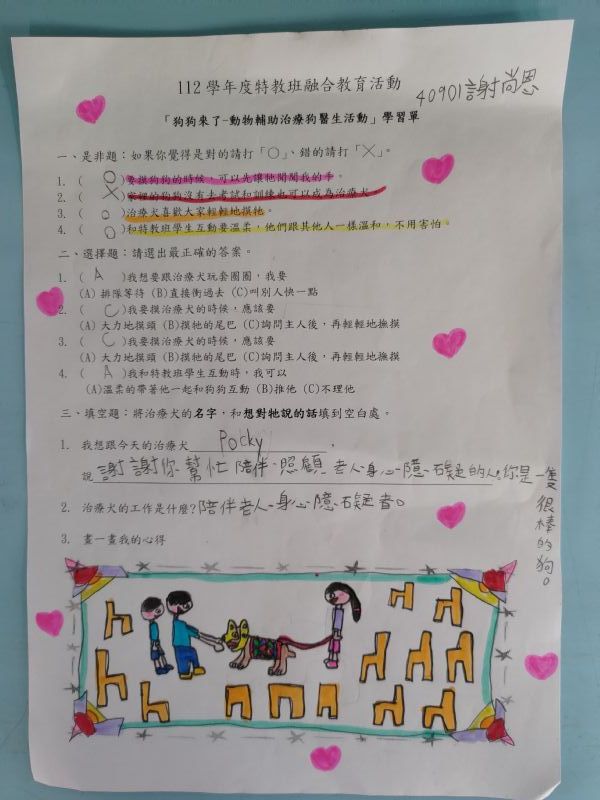 112 學年度特教班融合教育活動
40901謝尚恩
「狗狗來了-動物輔助治療狗醫生活動」學習單
一、是非題:如果你覺得是對的請打「○」、錯的請打「╳」。
1. ( ○ )要摸狗狗的時候,可以先讓牠聞聞我的手。
2. ( ╳ )家裡的狗狗沒有去考試和訓練也可以成為治療犬。
3. ( ○ )治療犬喜歡大家輕輕地摸牠。
4. ( ○ )和特教班學生互動要溫柔,他們跟其他人一樣溫和,不用害怕。
二、選擇題:請選出最正確的答案。
1. ( A )我想要跟治療犬玩套圈圈,我要
(A) 排隊等待 (B)直接衝過去 (C)叫別人快一點
2. ( C )我要摸治療犬的時候,應該要
(A) 大力地摸頭 (B)摸牠的尾巴 (C)詢問主人後,再輕輕地撫摸
3. ( C )我要摸治療犬的時候,應該要
(A) 大力地摸頭 (B)摸牠的尾巴 (C)詢問主人後,再輕輕地撫摸
4. ( A )我和特教班學生互動時,我可以
(A)溫柔的帶著他一起和狗狗互動 (B)推他 (C)不理他
三、填空題:將治療犬的名字,和想對牠說的話填到空白處。
1. 我想跟今天的治療犬 Pocky ,
說 謝謝你幫忙陪伴、照顧老人、身心障礙的人。你是一隻
很棒的狗。
2. 治療犬的工作是什麼?陪伴老人、身心障礙者。
3. 畫一畫我的心得